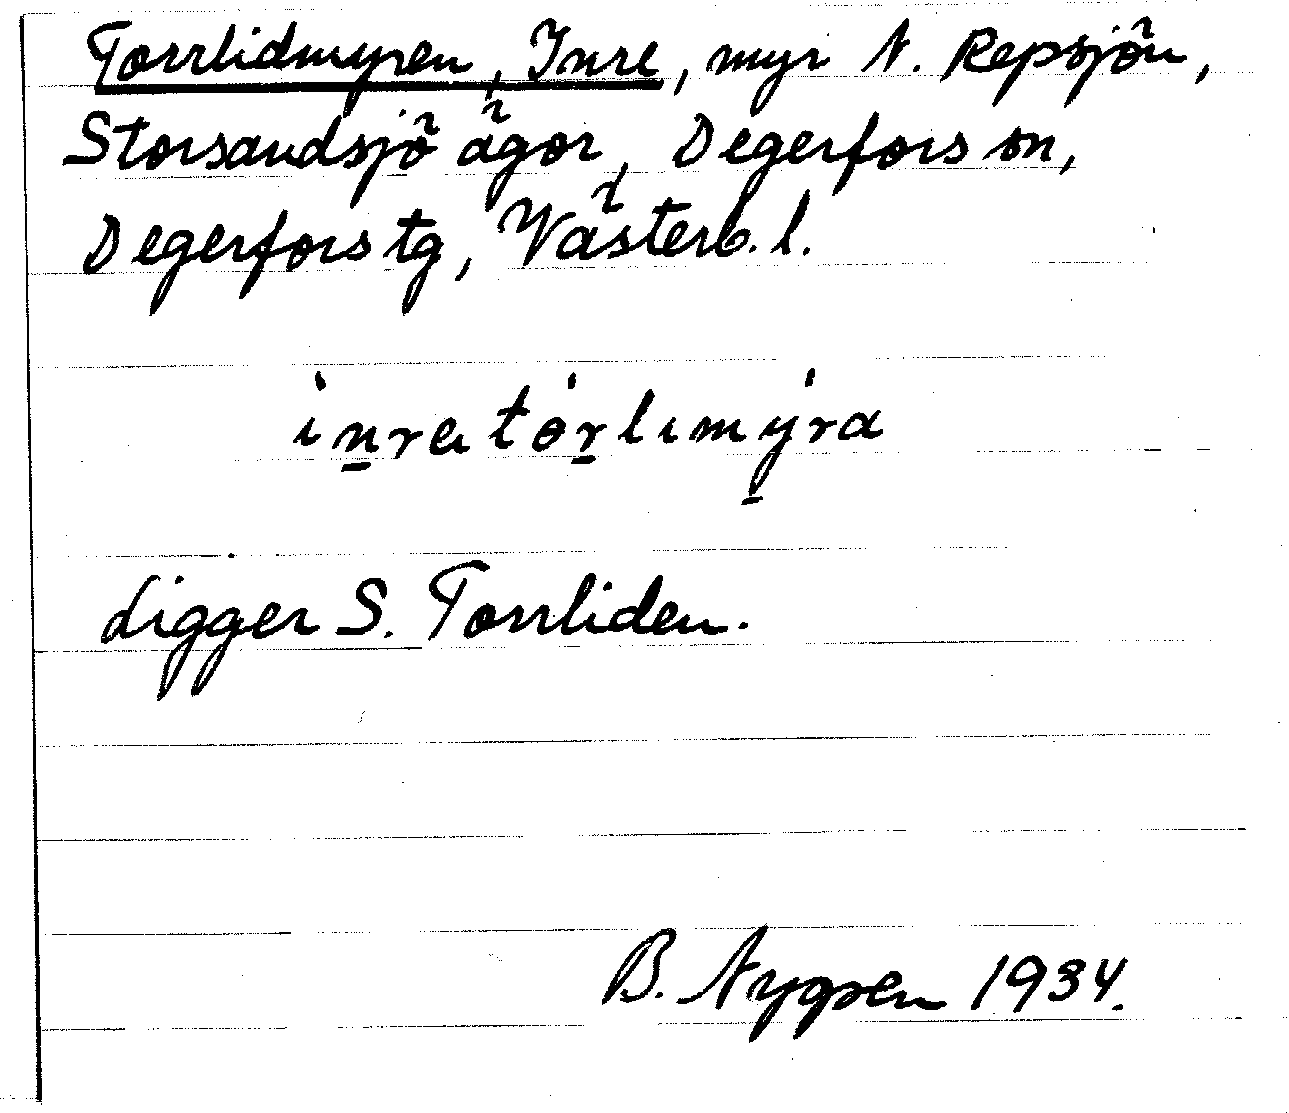 Torrlidmyren, Inre, myr N. Repsjön,
Storsandsjö ägor, Degerfors sn,
Degerfors tg, Västerb. l.
ınrata̍rlımy̍ra
Ligger S. Torrliden.
B. Nygren 1934.